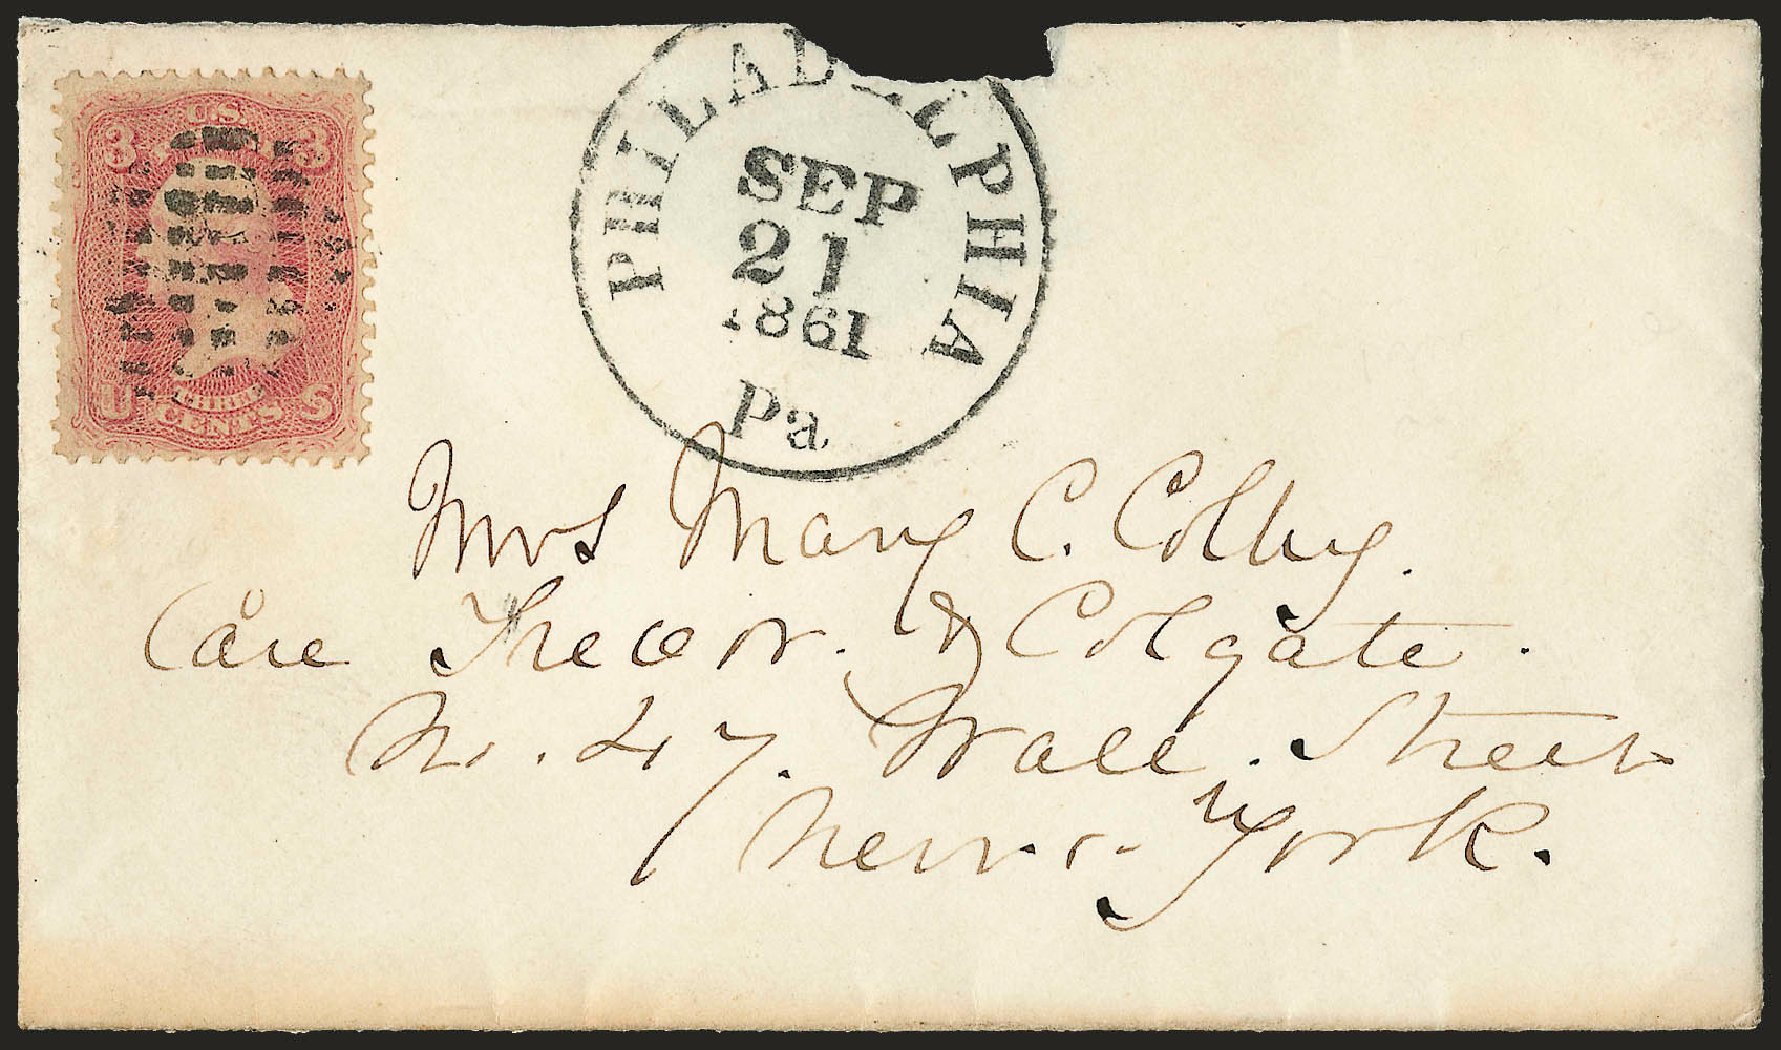 U.S.
3 3
THREE
U CENTS S
PHILADELPHIA
SEP
21
1861
Pa
Mrs Mary C. Colby.
Care Trevor. & Colgate.
No. 47. Wall. Street
New. York.